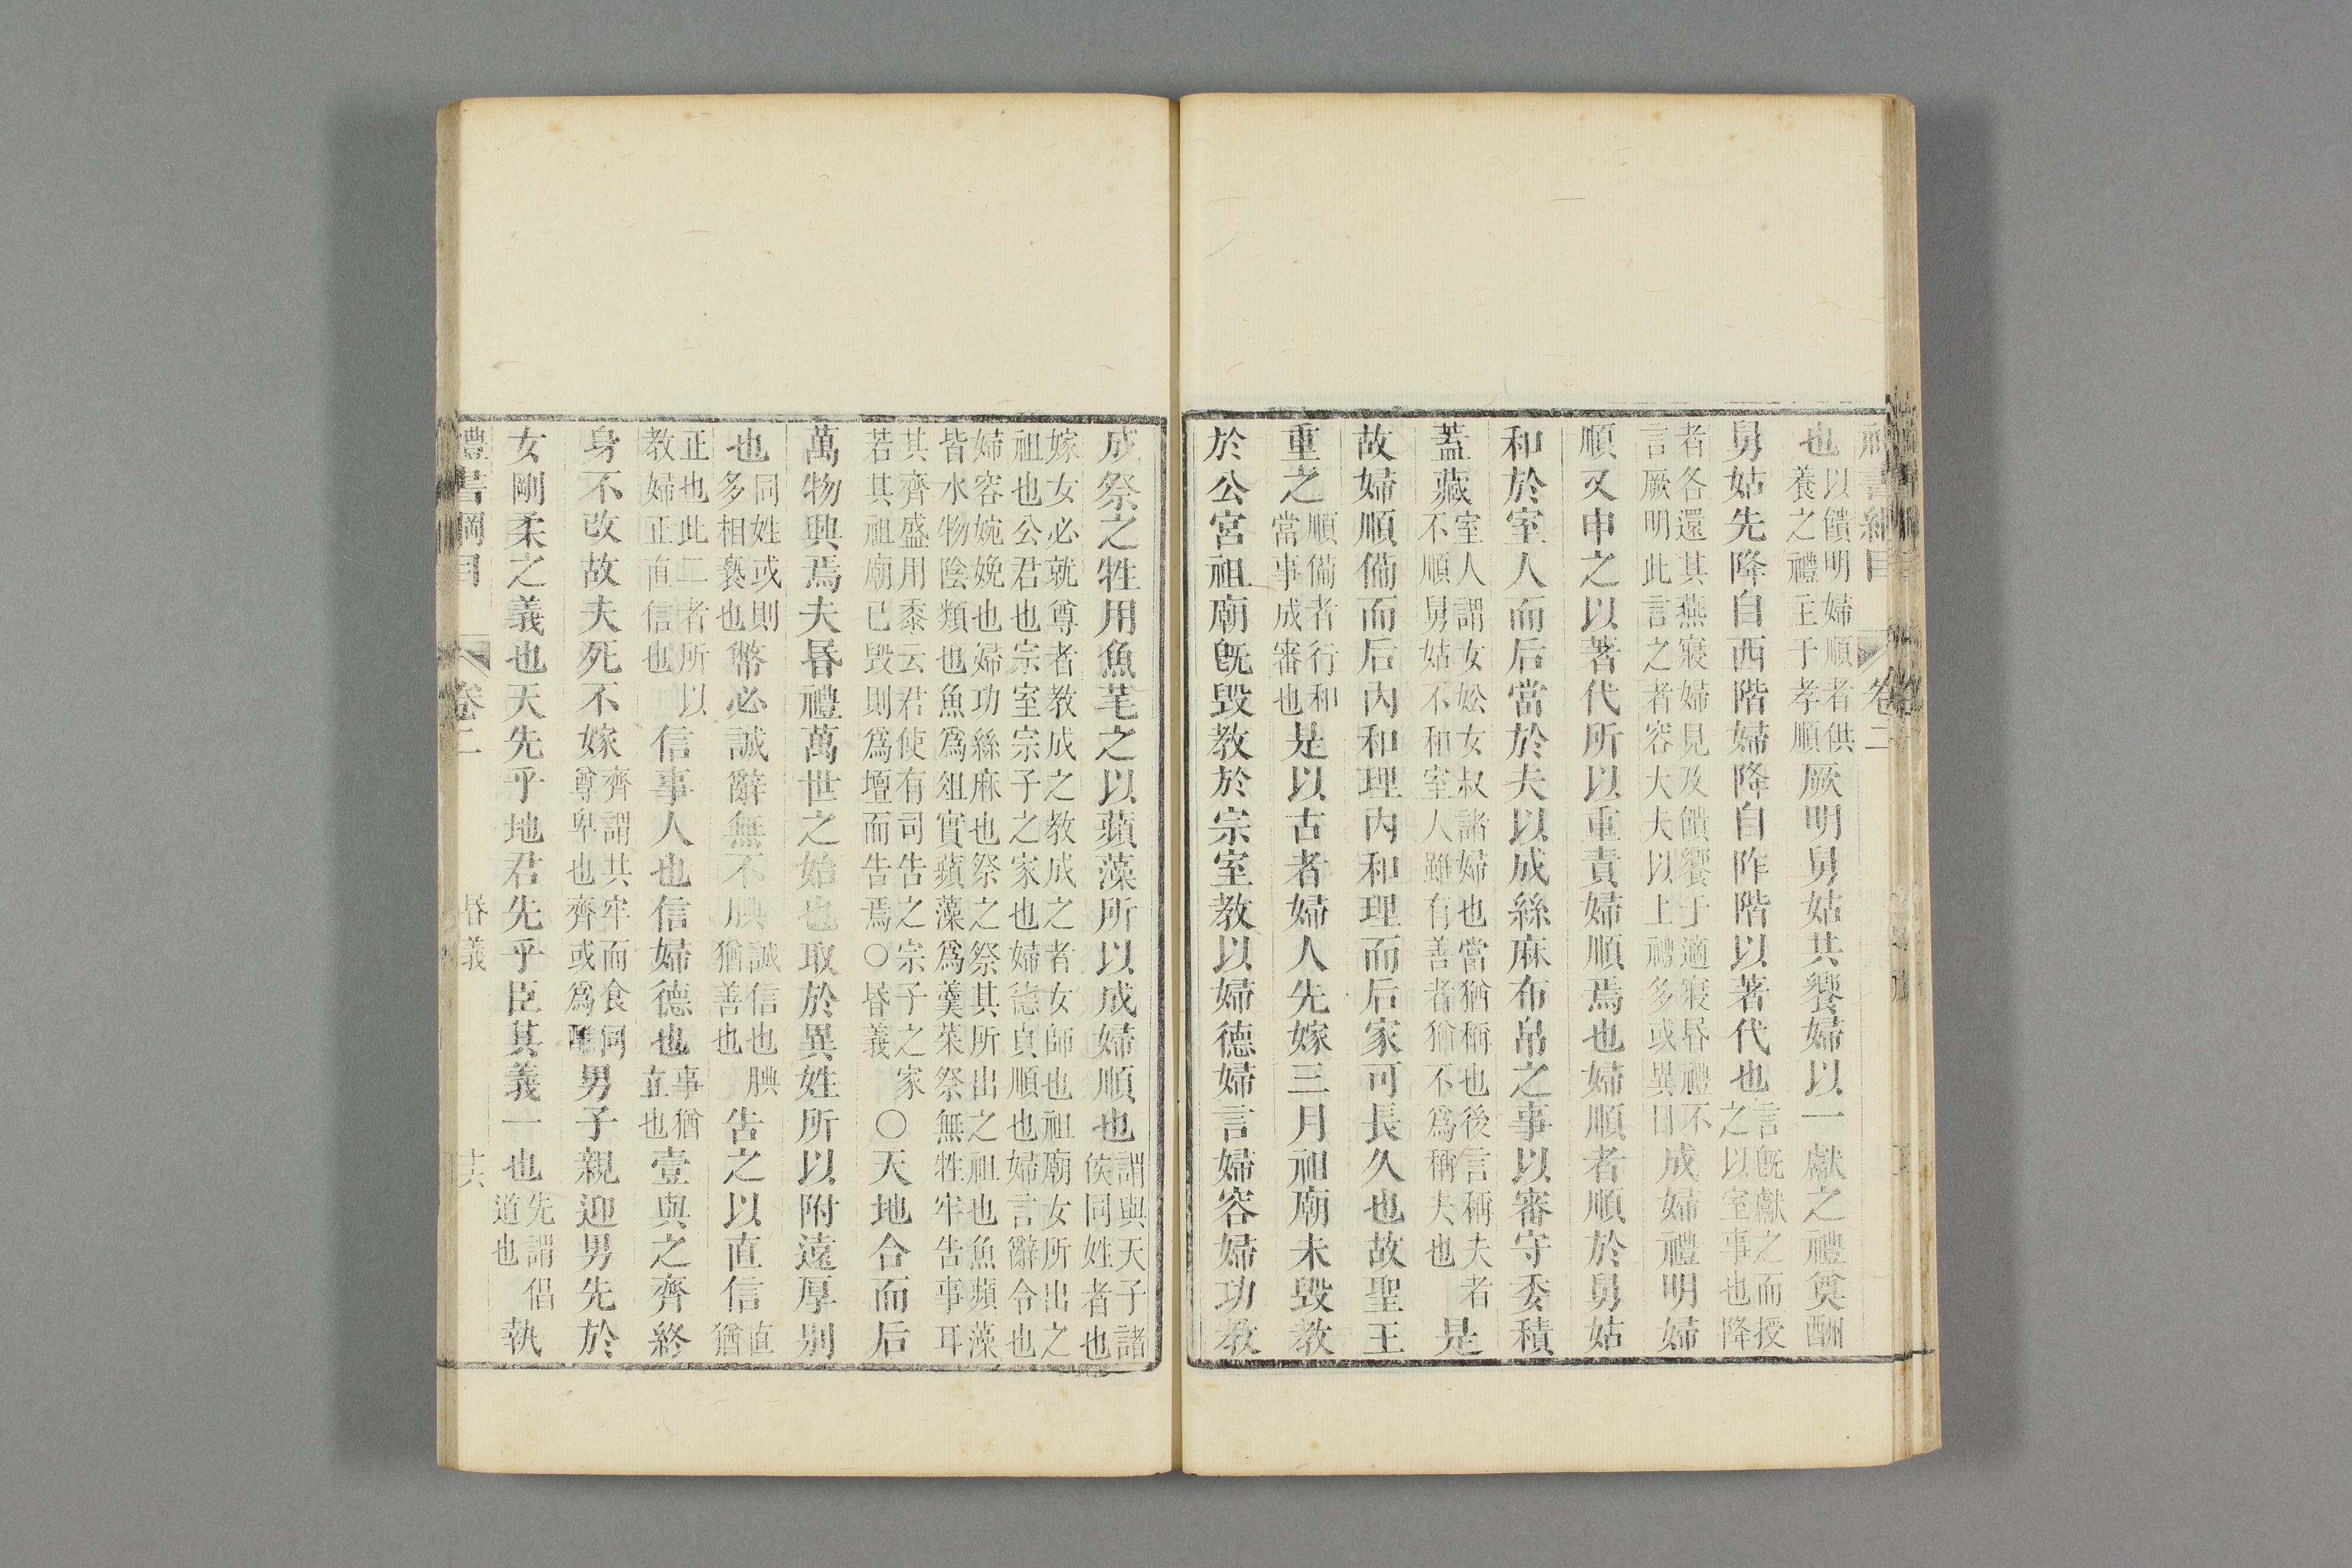 禮書綱目 卷二
也以饋明婦順者供養之禮主于孝順厥明舅姑共饗婦以一獻之禮奠酬
舅姑先降自西階婦降自阼階以著代也言旣獻之而授之以室事也降
者各還其燕寢婦見及饋饗于適寢昏禮不言厥明此言之者容大夫以上禮多或異日成婦禮明婦
順又申之以著代所以重責婦順焉也婦順者順於舅姑
和於室人而后當於夫以成絲麻布帛之事以審守委積
蓋藏室人謂女妐女叔諸婦也當猶稱也後言稱夫者不順舅姑不和室人雖有善者猶不爲稱夫也是
故婦順備而后内和理内和理而后家可長久也故聖王
重之順備者行和當事成審也是以古者婦人先嫁三月祖廟未毁教
於公宮祖廟旣毁教於宗室教以婦德婦言婦容婦功教
成祭之牲用魚芼之以蘋藻所以成婦順也謂與天子諸侯同姓者也
嫁女必就尊者教成之教成之者女師也祖廟女所出之祖也公君也宗室宗子之家也婦德貞順也婦言辭令也
婦容婉娩也婦功絲麻也祭之祭其所出之祖也魚蘋藻皆水物陰類也魚爲俎實蘋藻爲羹菜祭無牲牢告事耳
其齊盛用黍云君使有司告之宗子之家若其祖廟已毁則爲壇而告焉○昏義○天地合而后
萬物興焉夫昏禮萬世之始也取於異姓所以附遠厚别
也同姓或則多相褻也幣必誠辭無不腆誠信也腆猶善也告之以直信直猶
正也此二者所以教婦正直信也信事人也信婦德也事猶立也壹與之齊終
身不改故夫死不嫁齊謂共牢而食同尊卑也齊或爲醮男子親迎男先於
女剛柔之義也天先乎地君先乎臣其義一也先謂倡道也執
禮書綱目 卷二 昏義